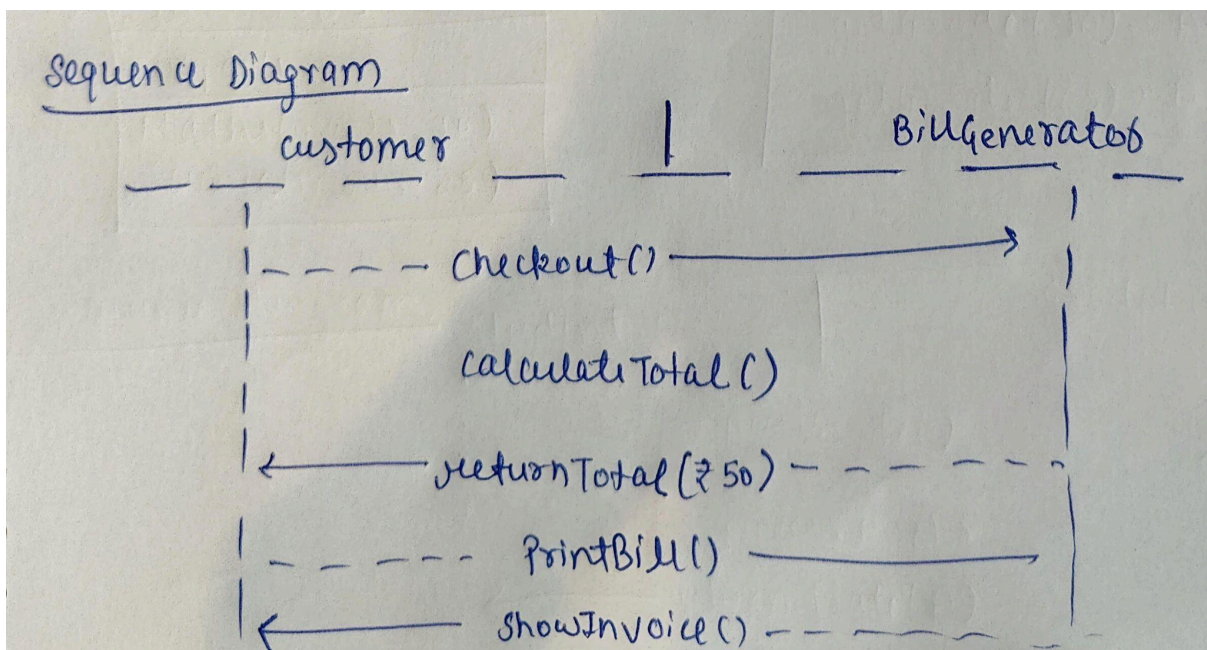 Sequence Diagram
customer | BillGenerator
Checkout()
calculateTotal()
returnTotal(₹50)
PrintBill()
showInvoice()